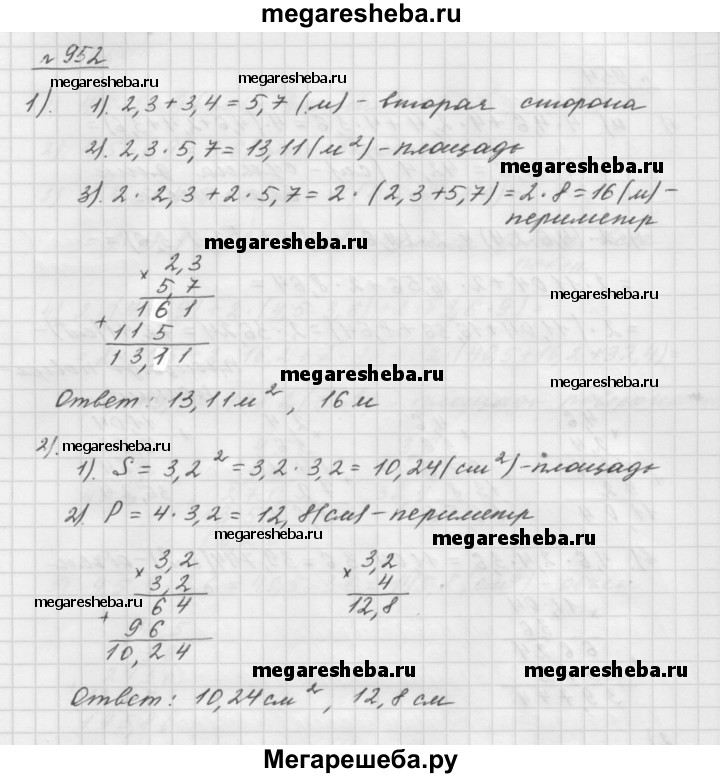 megaresheba.ru
№ 952
megaresheba.ru megaresheba.ru
1). 1). 2,3 + 3,4 = 5,7 (м) - вторая сторона
2). 2,3 · 5,7 = 13,11 (м²) - площадь
megaresheba.ru
3). 2 · 2,3 + 2 · 5,7 = 2 · (2,3 + 5,7) = 2 · 8 = 16 (м) -
периметр
megaresheba.ru
× 2,3
5,7
megaresheba.ru
161
+ 115
13,11
megaresheba.ru megaresheba.ru
Ответ: 13,11 м², 16 м
2). megaresheba.ru
1). S = 3,2² = 3,2 · 3,2 = 10,24 (см²) - площадь
2). P = 4 · 3,2 = 12,8 (см) - периметр
megaresheba.ru megaresheba.ru
× 3,2 × 3,2
3,2 4
megaresheba.ru 64 12,8
+ 96
10,24
megaresheba.ru megaresheba.ru
Ответ: 10,24 см², 12,8 см
Мегарешеба.ру